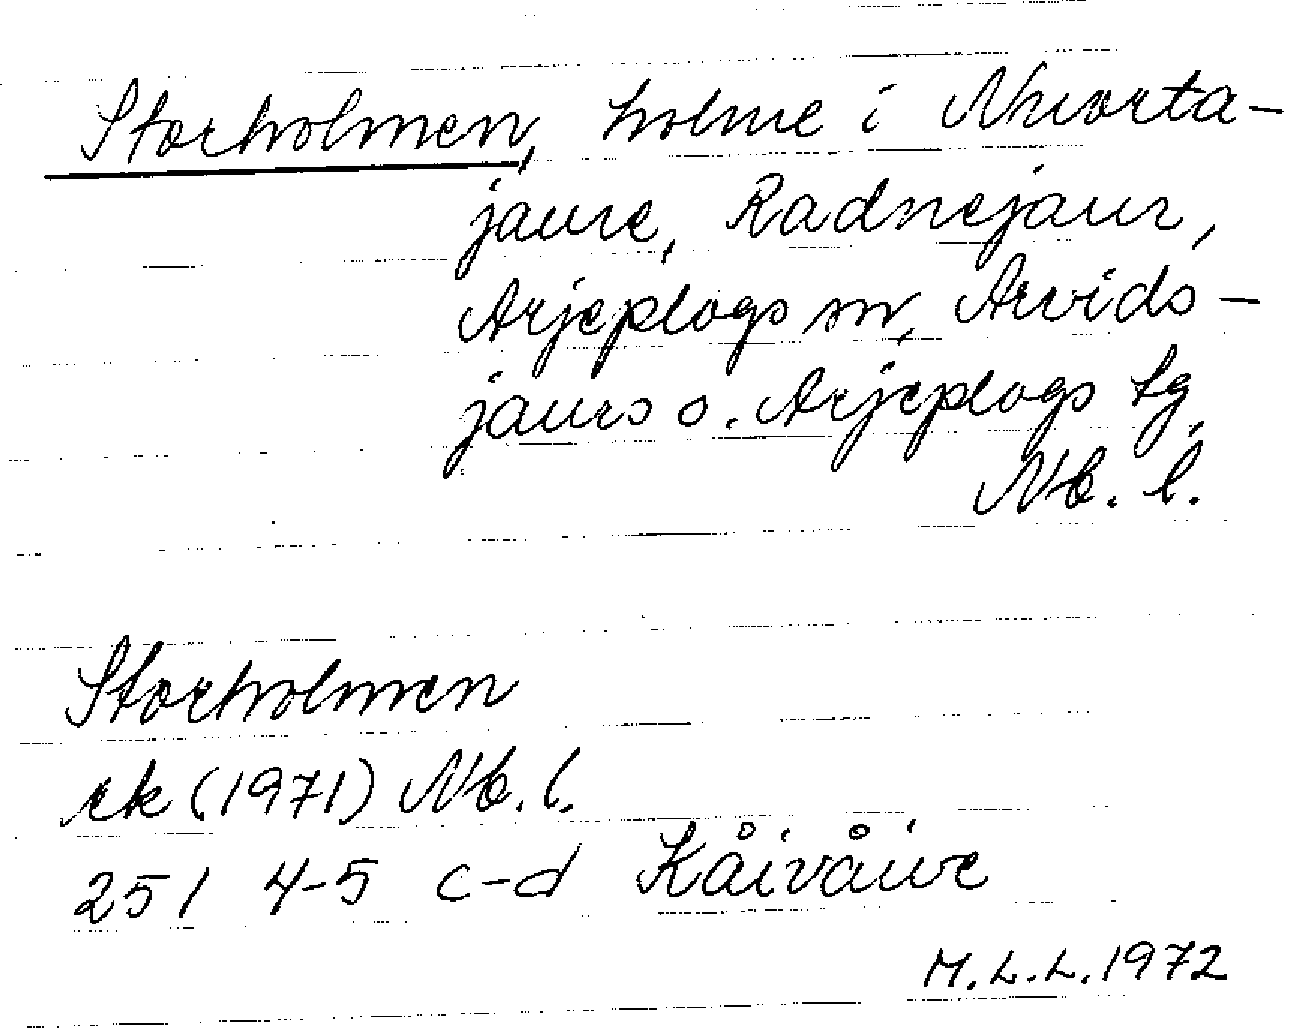 Storholmen, holme i Nuorta-
jaure, Radnejaur,
Arjeplogs sn, Arvids-
jaurs o. Arjeplogs tg,
Nb. l.
Storholmen
rk (1971) Nb. l.
25 I 4-5 c-d Kåivåive
M.L.L. 1972